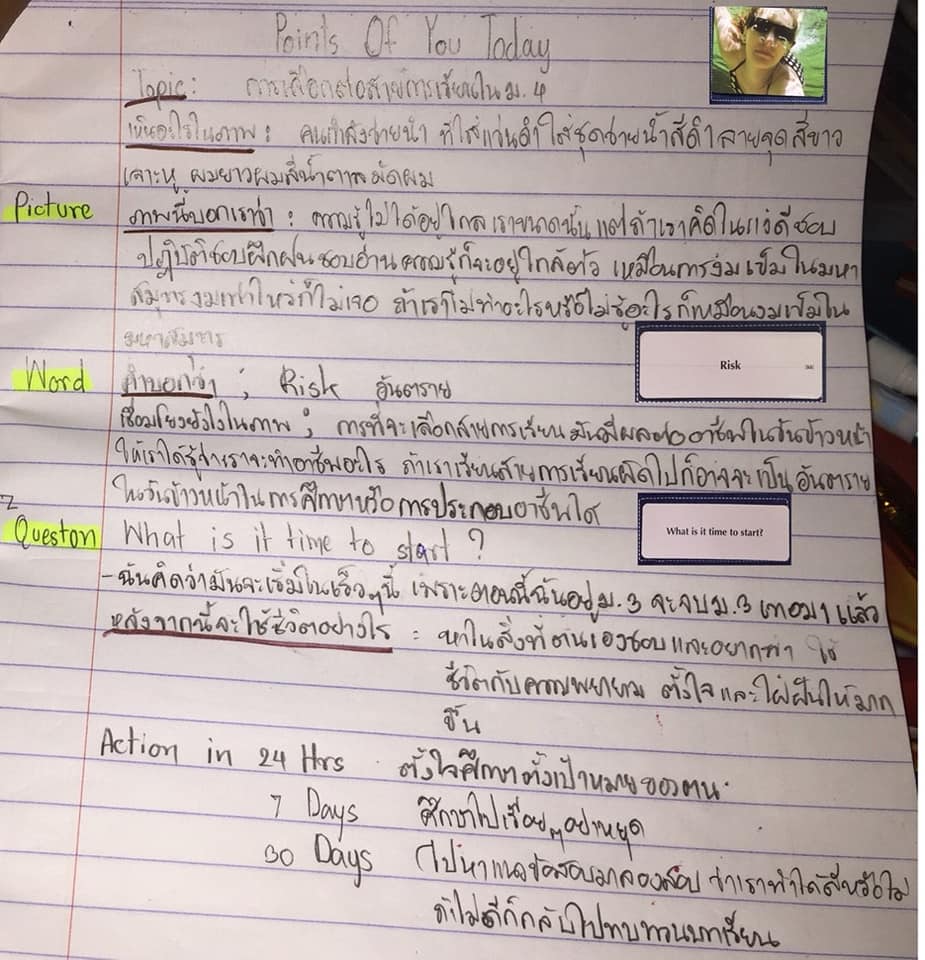 Points Of You Today
Topic: การเลือกต่อสายการเรียนใน ม. 4
เห็นอะไรในภาพ : คนกำลังว่ายน้ำ ที่ใส่แว่นดำ ใส่ชุดว่ายน้ำสีดำ ลายจุดสีขาว
เจาะหู ผมยาวผมสีน้ำตาล มัดผม
Picture ภาพนี้บอกเราว่า : ความรู้ไม่ได้อยู่ไกลเราขนาดนั้น แต่ถ้าเราคิดในแง่ดีชอบ
ปฏิบัติชอบฝึกฝน ชอบอ่าน ความรู้ก็จะอยู่ใกล้ตัว เหมือนการงมเข็มในมหา
สมุทร งมเท่าไหร่ก็ไม่เจอ ถ้าเราไม่ทำอะไรหรือไม่รู้อะไร ก็เหมือนงมเข็มใน
มหาสมุทร
Risk
Word คำบอกว่า ; Risk อันตราย
เชื่อมโยงยังไงในภาพ ; การที่จะเลือกสายการเรียน มันมีผลต่ออาชีพในวันข้าวหน้า
ให้เราได้รู้ว่าเราจะทำอาชีพอะไร ถ้าเราเรียนสายการเรียนผิดไปก็อาจจะเป็น อันตราย
ในวันข้าวหน้าในการศึกษาหรือการประกอบอาชีพใด
What is it time to start?
Queston What is it time to start ?
- ฉันคิดว่ามันจะเริ่มในเร็วๆนี้ เพราะตอนนี้ฉันอยู่ ม. 3 จะจบ ม. 3 เทอม 1 แล้ว
หลังจากนี้จะใช้ชีวิตอย่างไร : หาในสิ่งที่ตนเองชอบและอยากทำ ใช้
ชีวิตกับความพยายาม ตั้งใจและใฝ่ฝันให้มาก
ขึ้น
Action in 24 Hrs ตั้งใจศึกษาตั้งเป้าหมายของตน
7 Days ศึกษาไปเรื่อยๆอย่าหยุด
30 Days ไปหาแนวข้อสอบมาลองสอบ ว่าเราทำได้ดีหรือไม่
ถ้าไม่ดีก็กลับไปทบทวนบทเรียน